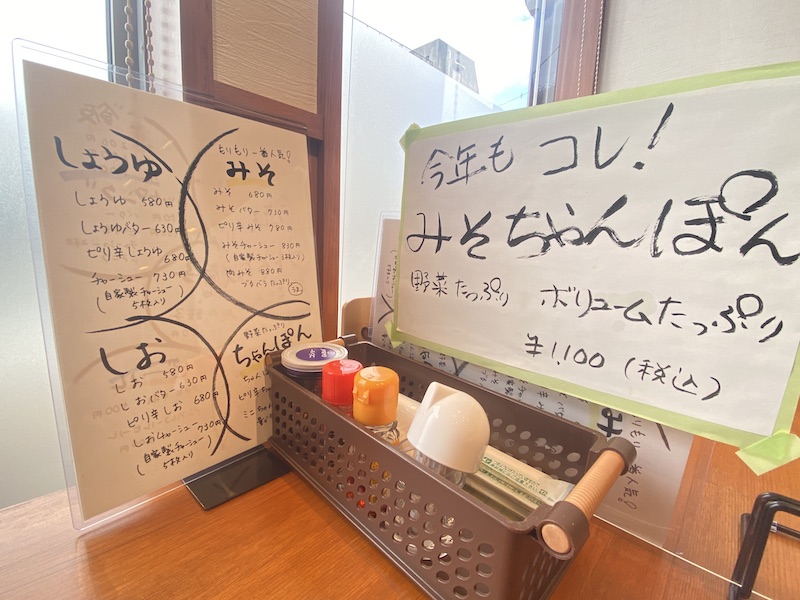 しょうゆ
しょうゆ 580円
しょうゆバター 630円
ピリ辛しょうゆ
680円
チャーシュー 730円
(自家製チャーシュー
5枚入り)
もりもり一番人気!
みそ
みそ 680円
みそバター 730円
ピリ辛みそ 780円
みそチャーシュー 830円
(自家製チャーシュー 5枚入り)
肉みそ 880円
しお
しお 580円
しおバター 630円
ピリ辛しお 680円
しおチャーシュー 730円
(自家製チャーシュー
5枚入り)
野菜たっぷり
ちゃんぽん
ちゃん
ピリ辛
ミニ
今年も コレ!
みそちゃんぽん
野菜たっぷり ボリュームたっぷり
¥1,100 (税込)